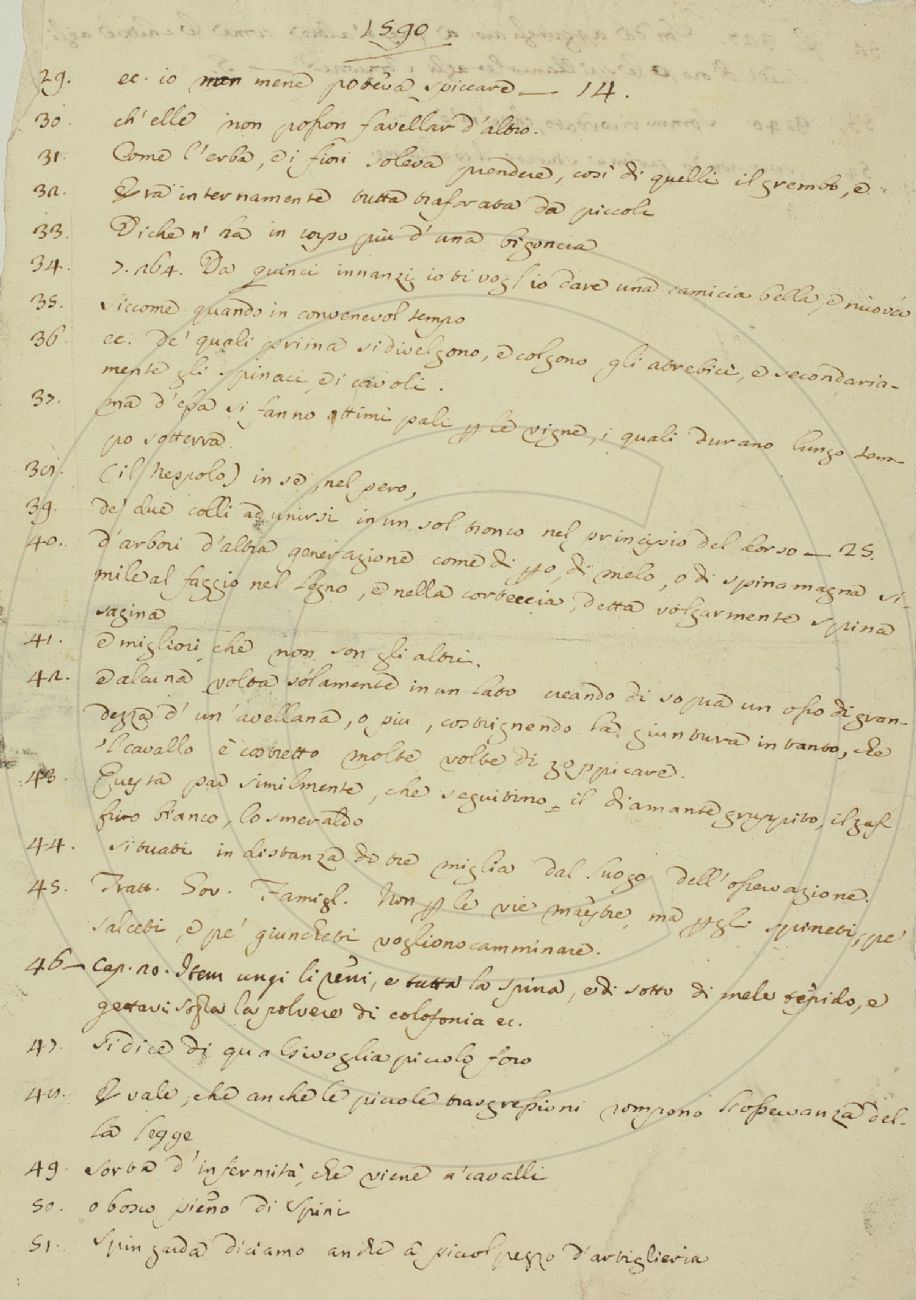 1590
29. ec. io non mene poteva spiccare — 14.
30. ch'elle non posson favellar d'altro.
31. Come l'erba, e i fiori soleva prendere, così di quelli il grembo, e
32. Era internamente tutta traforata da piccoli
33. Diche n' ha in corpo più d'una bigoncia
34. 7. 264. Da quinci innanzi io ti voglio dare una camicia bella, e nuova
35. siccome quando in convenevol tempo
36. ec. de' quali prima si divelgono, e colgono gli atrebici, e secondaria-
mente gli spinaci, e i cavoli.
37. ma d'essa si fanno ottimi pali p le vigne, i quali durano lungo tem-
po sotterra
38. (il Neppolo) in se, nel pero,
39. de' due colli ad unirsi in un sol tronco nel principio del Corso — 25.
40. d'arbori d'altra generazione come di ppo, di melo, o di spinamagna si-
mile al faggio nel legno, e nella corteccia, detta volgarmente spina
sagina
41. e migliori, che non son gli altri.
42. e alcuna volta solamente in un lato creando di sopra un osso di gran-
dezza d'un'avellana, o piu, costrignendo la giuntura in tanto, che
'l cavallo è costretto molte volte di zoppicare.
43. Questa par similmente, che seguitino = il diamante gruppito, il zaf-
firo bianco, lo smeraldo
44. situati in distanza di tre miglia dal luogo dell'osservazione.
45. Tratt. Gov. Famigl. Non p le vie maestre, ma p gli spineti, pe'
salceti, e pe' giuncheti vogliono camminare.
46 — Cap. 20. Item ungi li reni, e tutta la spina, e di sotto di mele tepido, e
gettavi sopra la polvere di colofonia ec.
47. Si dice di qualsivoglia piccolo foro
48. E vale, che anche le piccole trasgressioni rompono l'osservanza del-
la legge
49. sorta d'infermità, che viene a' cavalli
50. o bosco pieno di spini
51. Spingarda diciamo anche a piccol pezzo d'artiglieria